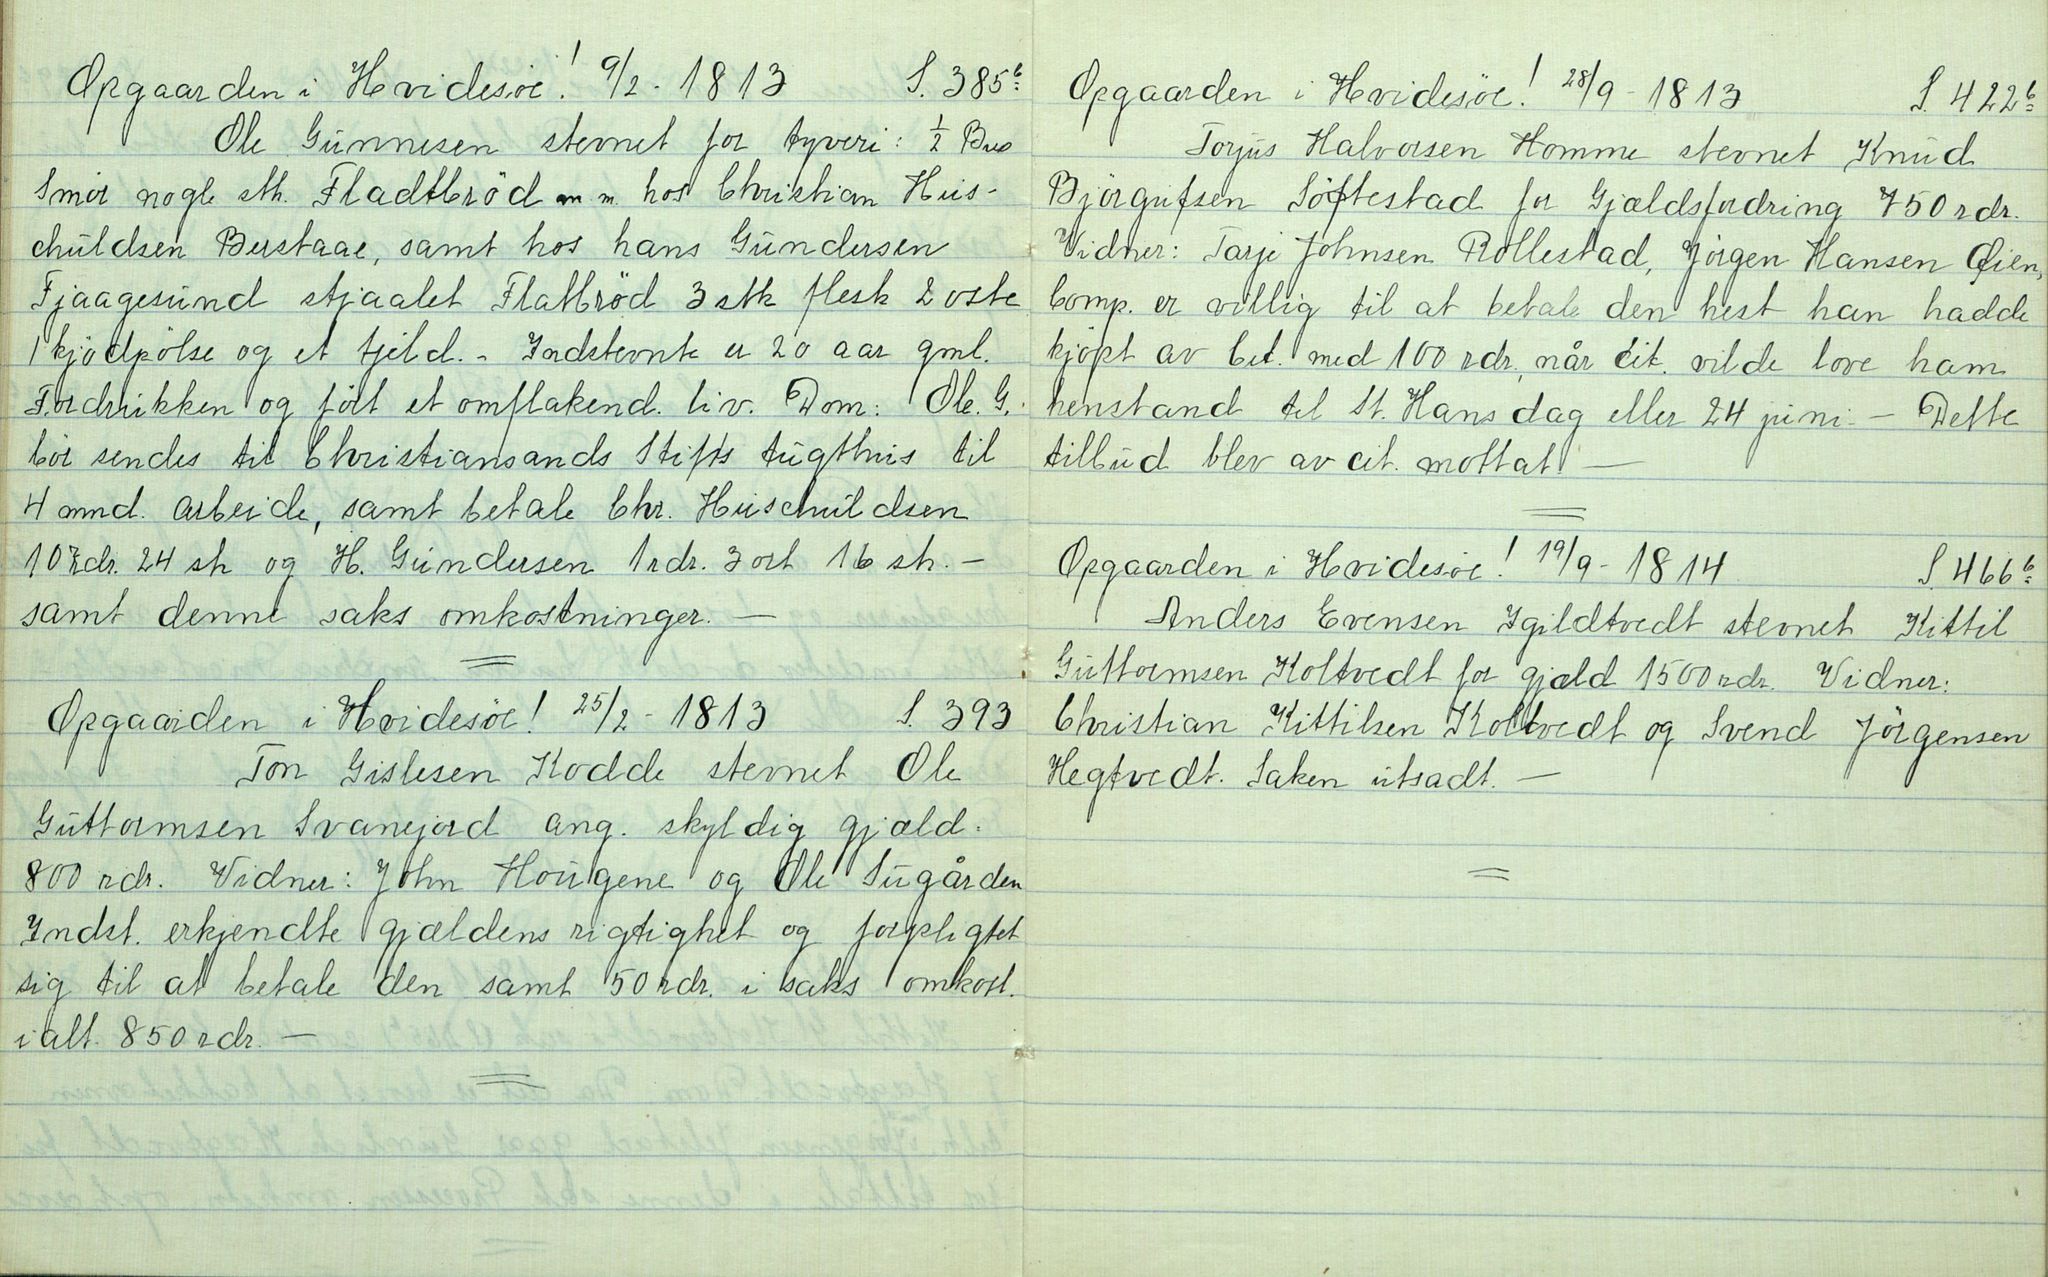 Opgaarden i Hvidesøe! 9/2 - 1813 S. 385 b
Ole Gunnesen stevnet for tyveri: 1/2 Bup
Smör nogle stk. Fladtbröd m m. hos Christian Hus-
chuldsen Berstaae, samt hos hans Gundersen
Fjaagesund stjaalet Flatbröd 3 stk flesk 2 oste
1 kjödpölse og et fjeld. - Indstevnte er 20 aar gml.
Fordrukken og fört et omflakend. liv. Dom: Ole. G.
bör sendes til Christiansands Stifts tugthus til
4 mnd. arbeide, samt betale Chr. Huschuldsen
10 rdr. 24 sk og H. Gundersen 1 rdr. 3 ort 16 sk. -
samt denne saks omkostninger. —
Opgaarden i Hvidesøe! 25/2 - 1813 S. 393
Ton Gislesen Kodde stevnet Ole
Guttormsen Svanejord ang. skyldig gjæld.
800 rdr. Vidner: John Hougene og Ole Sugården
Indst. erkjendte gjældens rigtighet og forpligtet
sig til at betale den samt 50 rdr. i saks omkost.
ialt. 850 rdr. —
Opgaarden i Hvidesöe! 28/9 - 1813 S. 422 b
Torjus Halvorsen Homme stevnet Knud
Björgufsen Söftestad for Gjældsfordring 750 rdr.
Vidner: Tarje Johnsen Rollestad, Jörgen Hansen Øien,
Comp. er villig til at betale den hest han hadde
kjöpt av Cit. med 100 rdr., når Cit. vilde love ham
henstand til St. Hans dag eller 24 juni. — Dette
tilbud blev av cit. mottat. —
Opgaarden i Hvidesöe! 19/9 - 1814 S. 466 b
Anders Evensen Ygildtvedt stevnet Kittil
Guttormsen Koltvedt for gjæld 1500 rdr. Vidner:
Christian Kittilsen Koltvedt og Svend Jörgensen
Hegtvedt. Saken utsadt. —